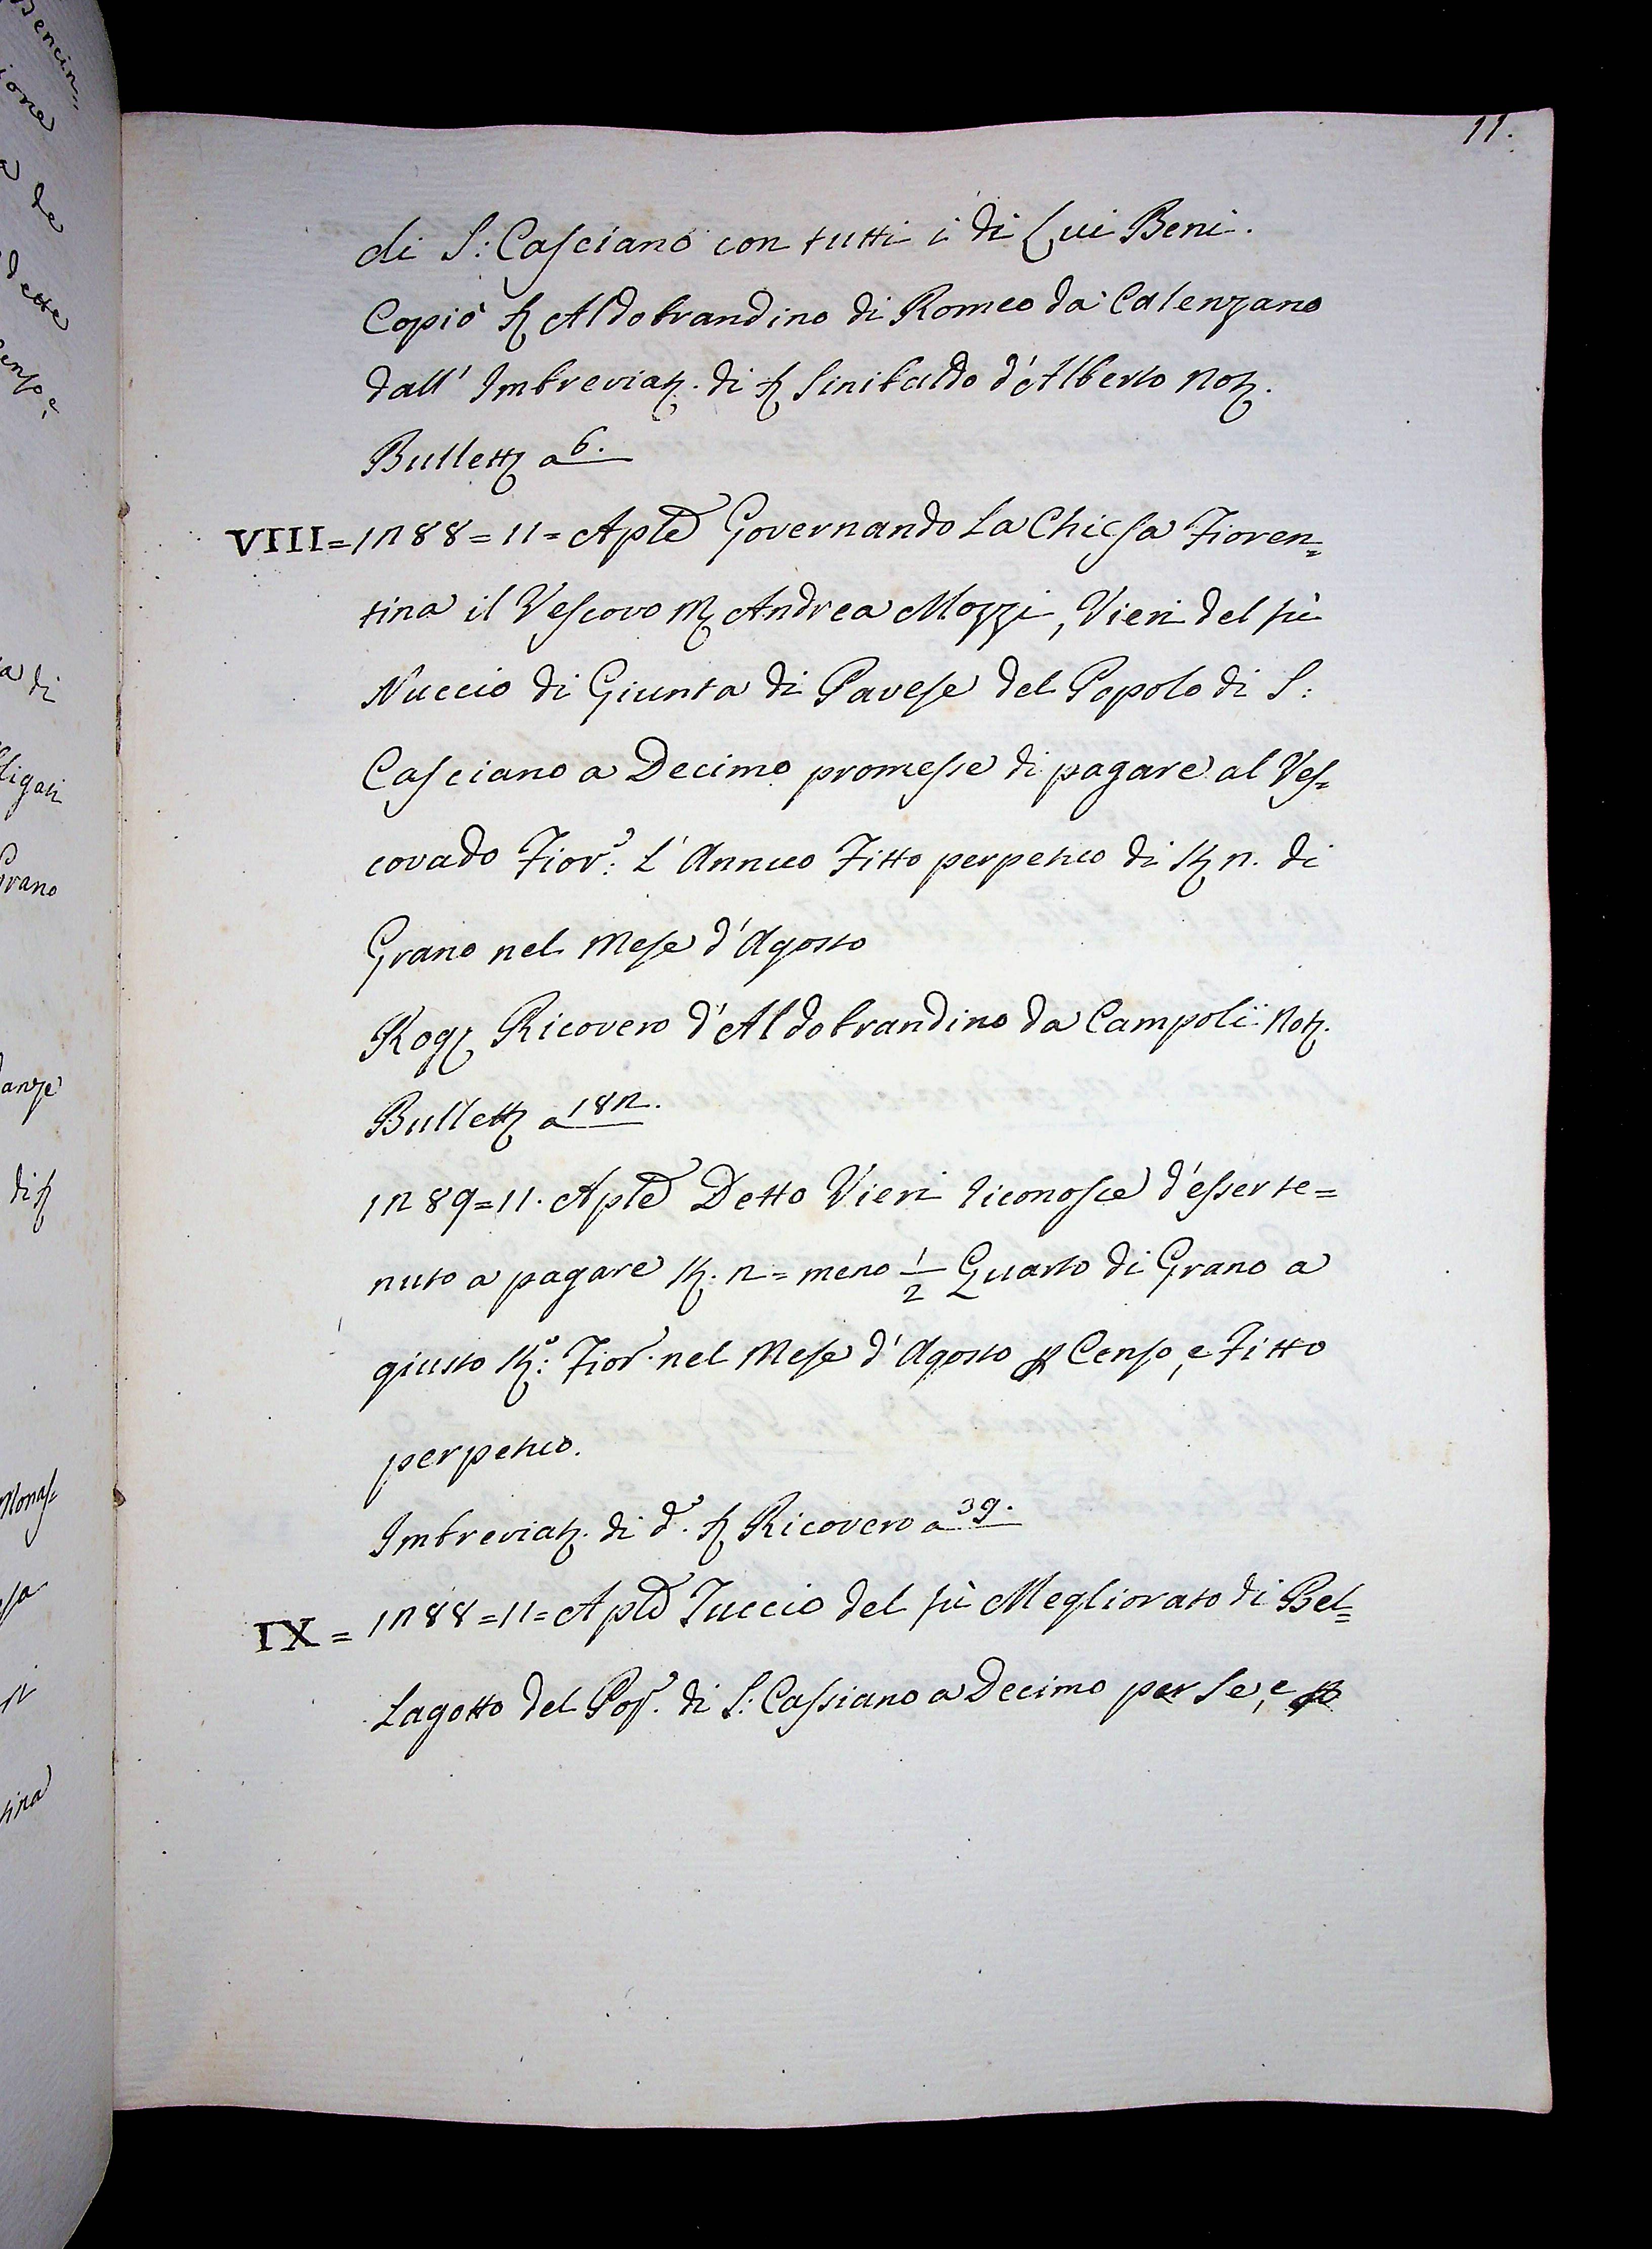 11.
di S: Casciano con tutti i di Lui Beni.
Copiò Aldobrandino di Romeo da Calenzano
dall' Imbreviaz. di Sinibaldo d'Alberto Not.
Bullett a 6.
VIII = 1288 = 11 = Aple Governando La Chiesa Fioren=
tina il Vescovo M Andrea Mozzi, Vieri del fù
Nuccio di Giunta di Pavese del Popolo di S:
Casciano a Decimo promesse di pagare al Ves=
covado Fior.º L'Annuo Fitto perpetuo di St 2. di
Grano nel Mese d'Agosto
Rog Ricovero d'Aldobrandino da Campoli Not.
Bullett a 182.
1289 = 11. Aple Detto Vieri riconosce d'esser te=
nuto a pagare St. 2 = meno 1/2 Quarto di Grano a
giusto St.º: Fior. nel Mese d'Agosto p Censo, e Fitto
perpetuo.
Imbreviaz. di d.º Ricovero a 39.
IX = 1288 = 11 = Aple Tuccio del fù Megliorato di Bel=
Lagotto del Pop.º di S: Cassiano a Decimo per Se, e p